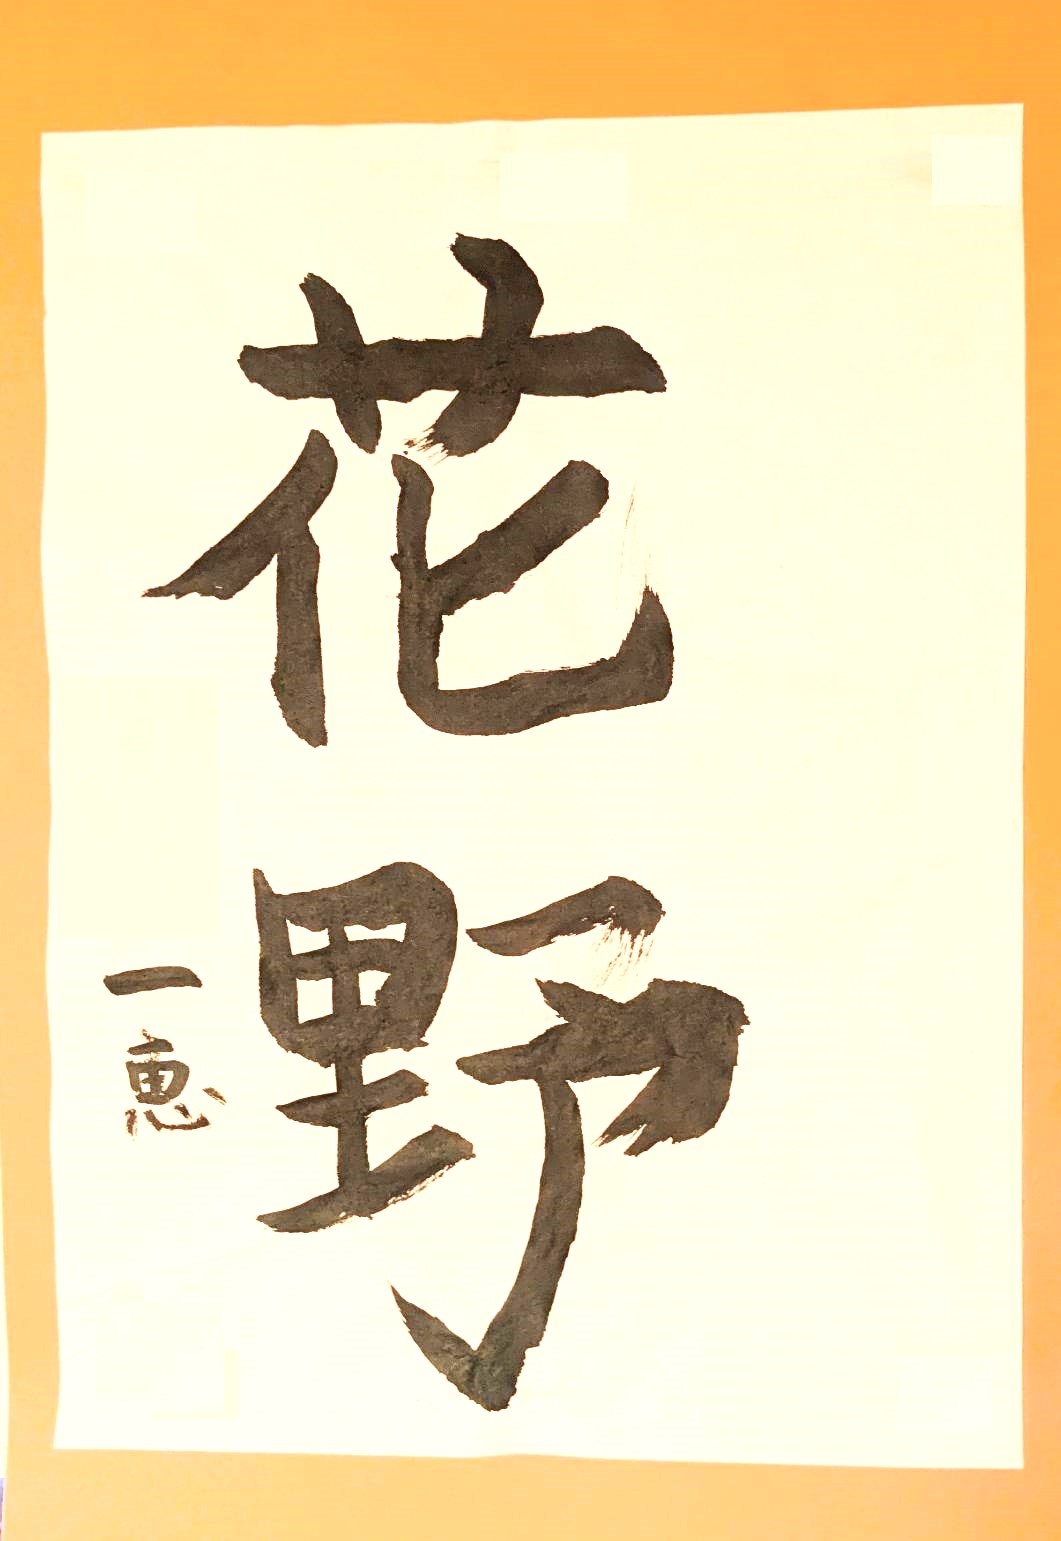 花野
一恵